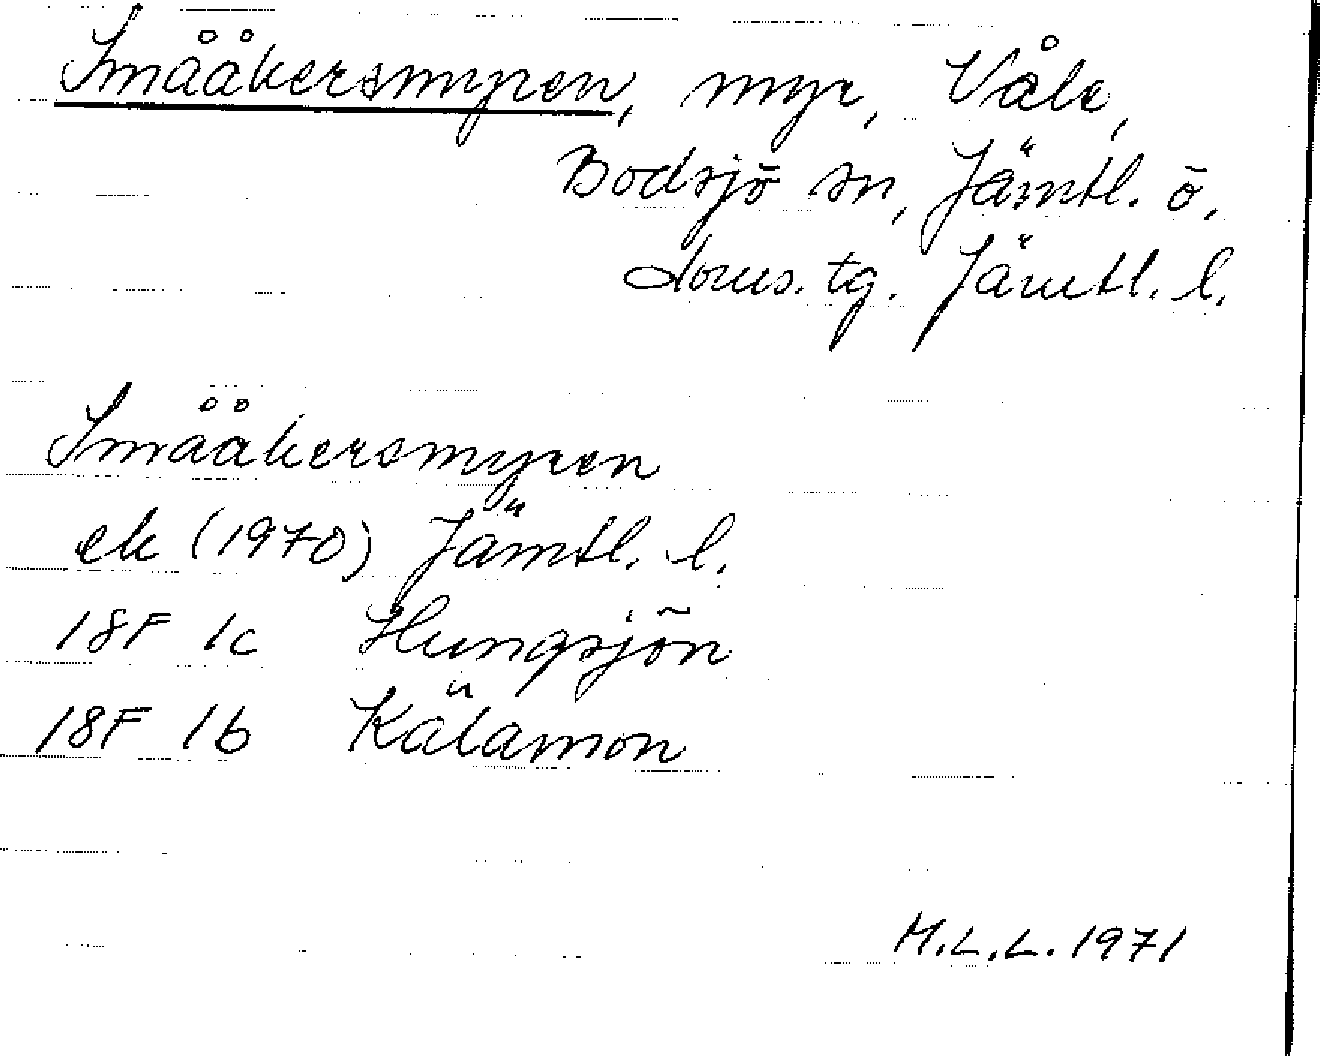 Smååkersmyren, myr, Våle,
Bodsjö sn, Jämtl. ö.
doms. tg. Jämtl. l.
Smååkersmyren
ek (1970) Jämtl. l.
18F 1c Hungsjön
18F 1b Kälamon
M.L.L. 1971